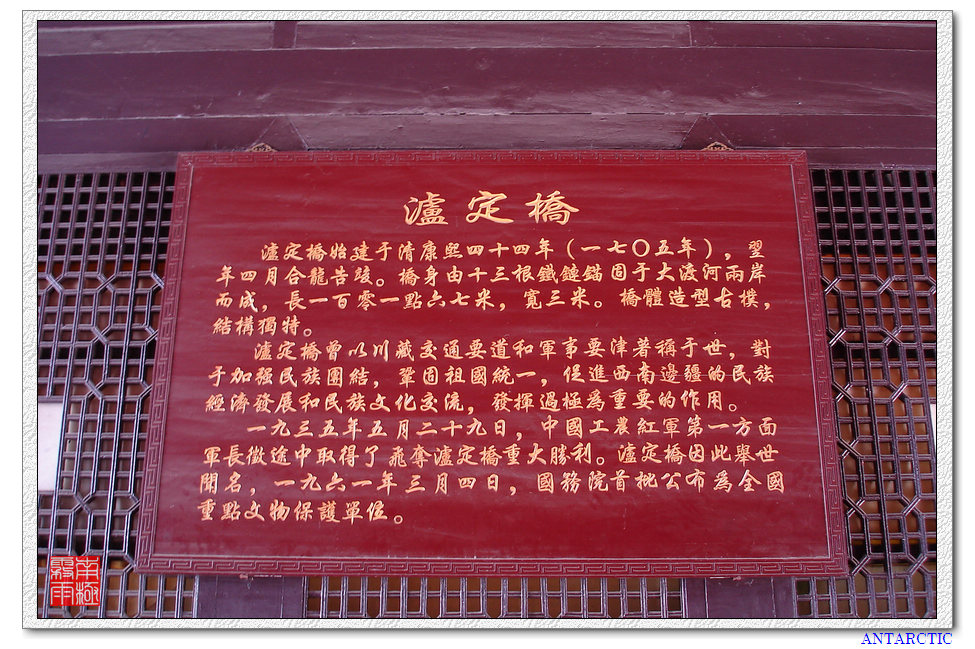 瀘定橋
瀘定橋始建于清康熙四十四年（一七〇五年），翌
年四月合龍告竣。橋身由十三根鐵鏈錨固于大渡河兩岸
而成，長一百零一點六七米，寬三米。橋體造型古樸，
結構獨特。
瀘定橋曾以川藏交通要道和軍事要津著稱于世，對
于加强民族團結，鞏固祖國統一，促進西南邊疆的民族
經濟發展和民族文化交流，發揮過極為重要的作用。
一九三五年五月二十九日，中國工農紅軍第一方面
軍長徵途中取得了飛奪瀘定橋重大勝利。瀘定橋因此舉世
聞名，一九六一年三月四日，國務院首批公布爲全國
重點文物保護單位。
ANTARCTIC